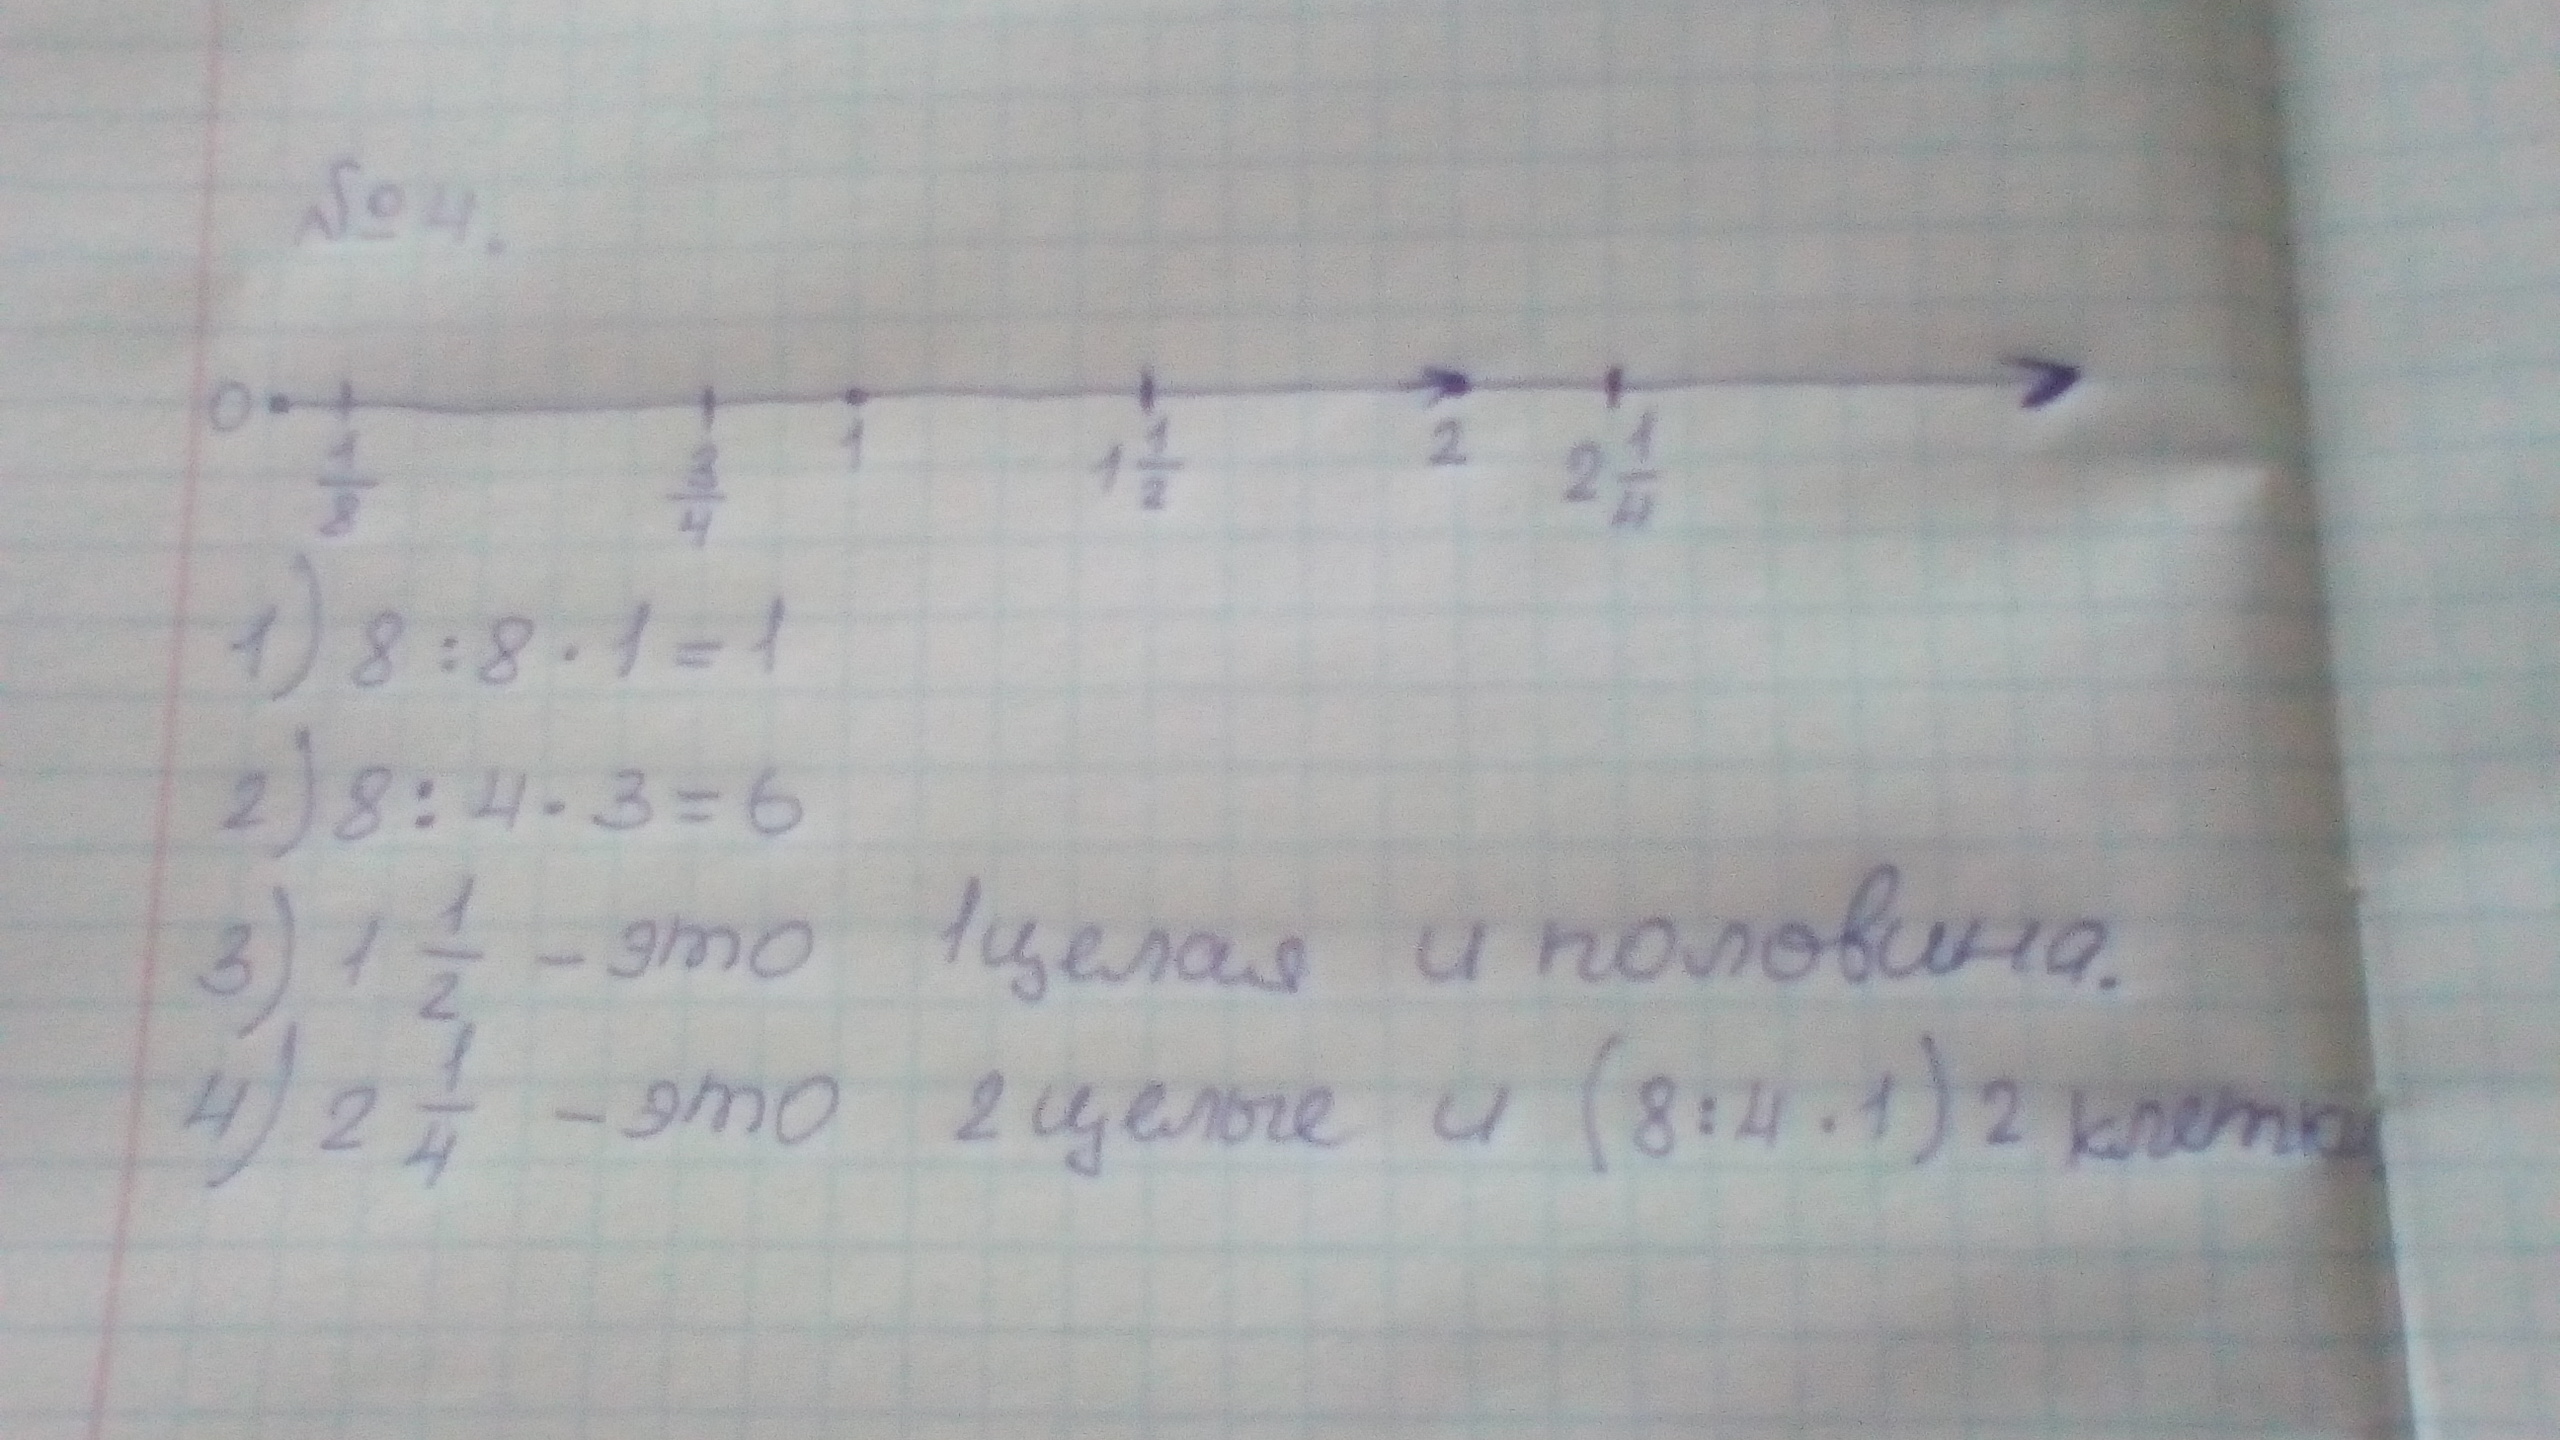 № 4.
0 1/8 3/4 1 1 1/2 2 2 1/4
1) 8 : 8 · 1 = 1
2) 8 : 4 · 3 = 6
3) 1 1/2 – это 1 целая и половина.
4) 2 1/4 – это 2 целые и (8 : 4 · 1) 2 клетки